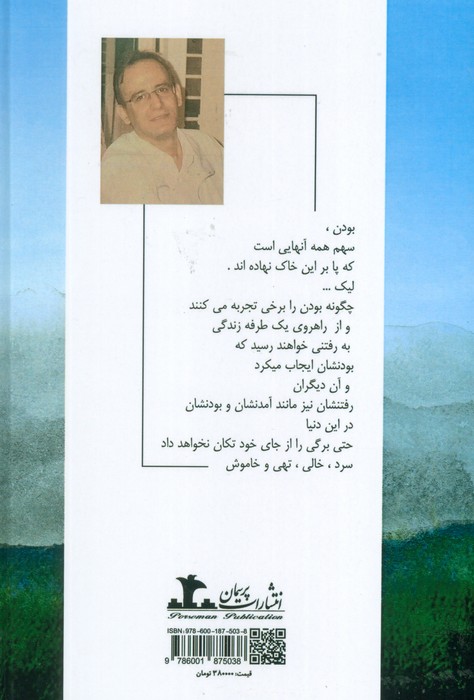 بودن ،
سهم همه آنهایی است
که پا بر این خاک نهاده اند .
لیک ...
چگونه بودن را برخی تجربه می کنند
و از راهروی یک طرفه زندگی
به رفتنی خواهند رسید که
بودنشان ایجاب میکرد
و آن دیگران
رفتنشان نیز مانند آمدنشان و بودنشان
در این دنیا
حتی برگی را از جای خود تکان نخواهد داد
سرد ، خالی ، تهی و خاموش
انتشارات پریمان
Perseman Publication
ISBN: 978-600-187-503-8
9 786001 875038
قیمت: ۳۸۰۰۰۰ تومان